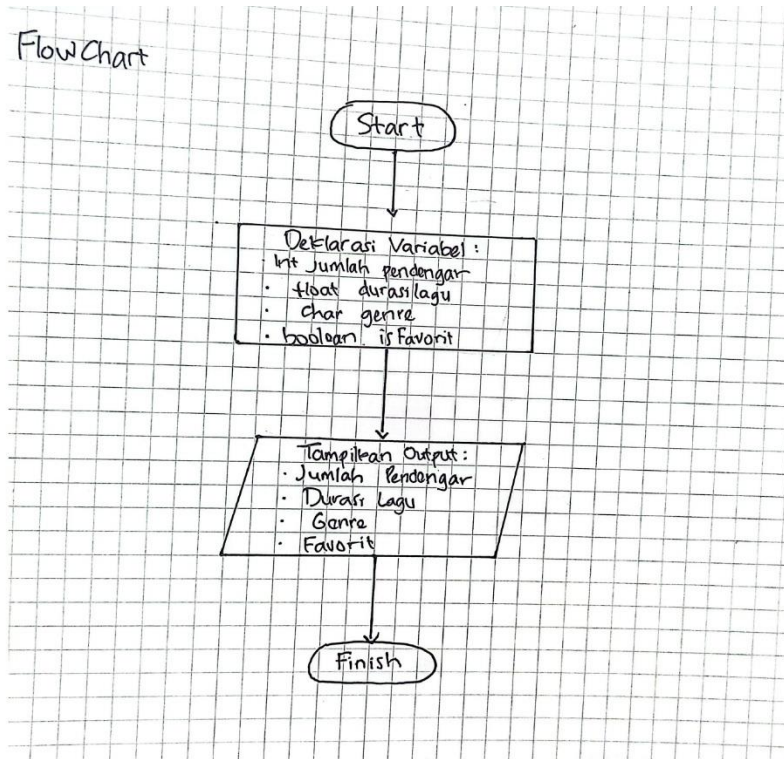 FlowChart
Start
Deklarasi Variabel :
· Int Jumlah pendengar
· float durasi lagu
· char genre
· boolean is Favorit
Tampilkan Output :
· Jumlah Pendengar
· Durasi Lagu
· Genre
· Favorit
Finish